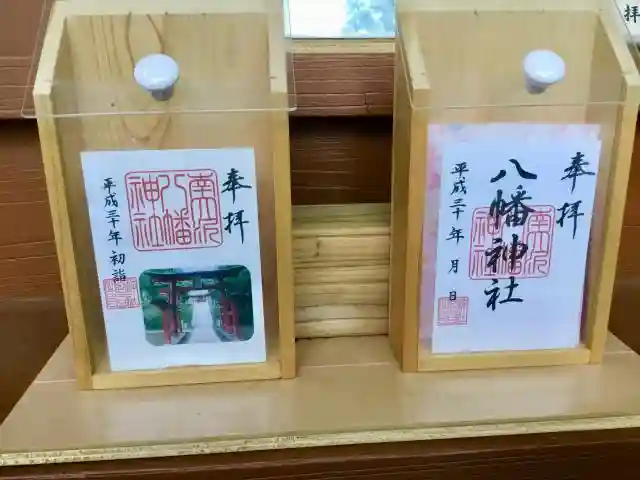 奉拝
南沢
八幡
神社
平成三十年 初詣
奉拝
八幡神社
南沢
八幡
神社
平成三十年 月 日
拝